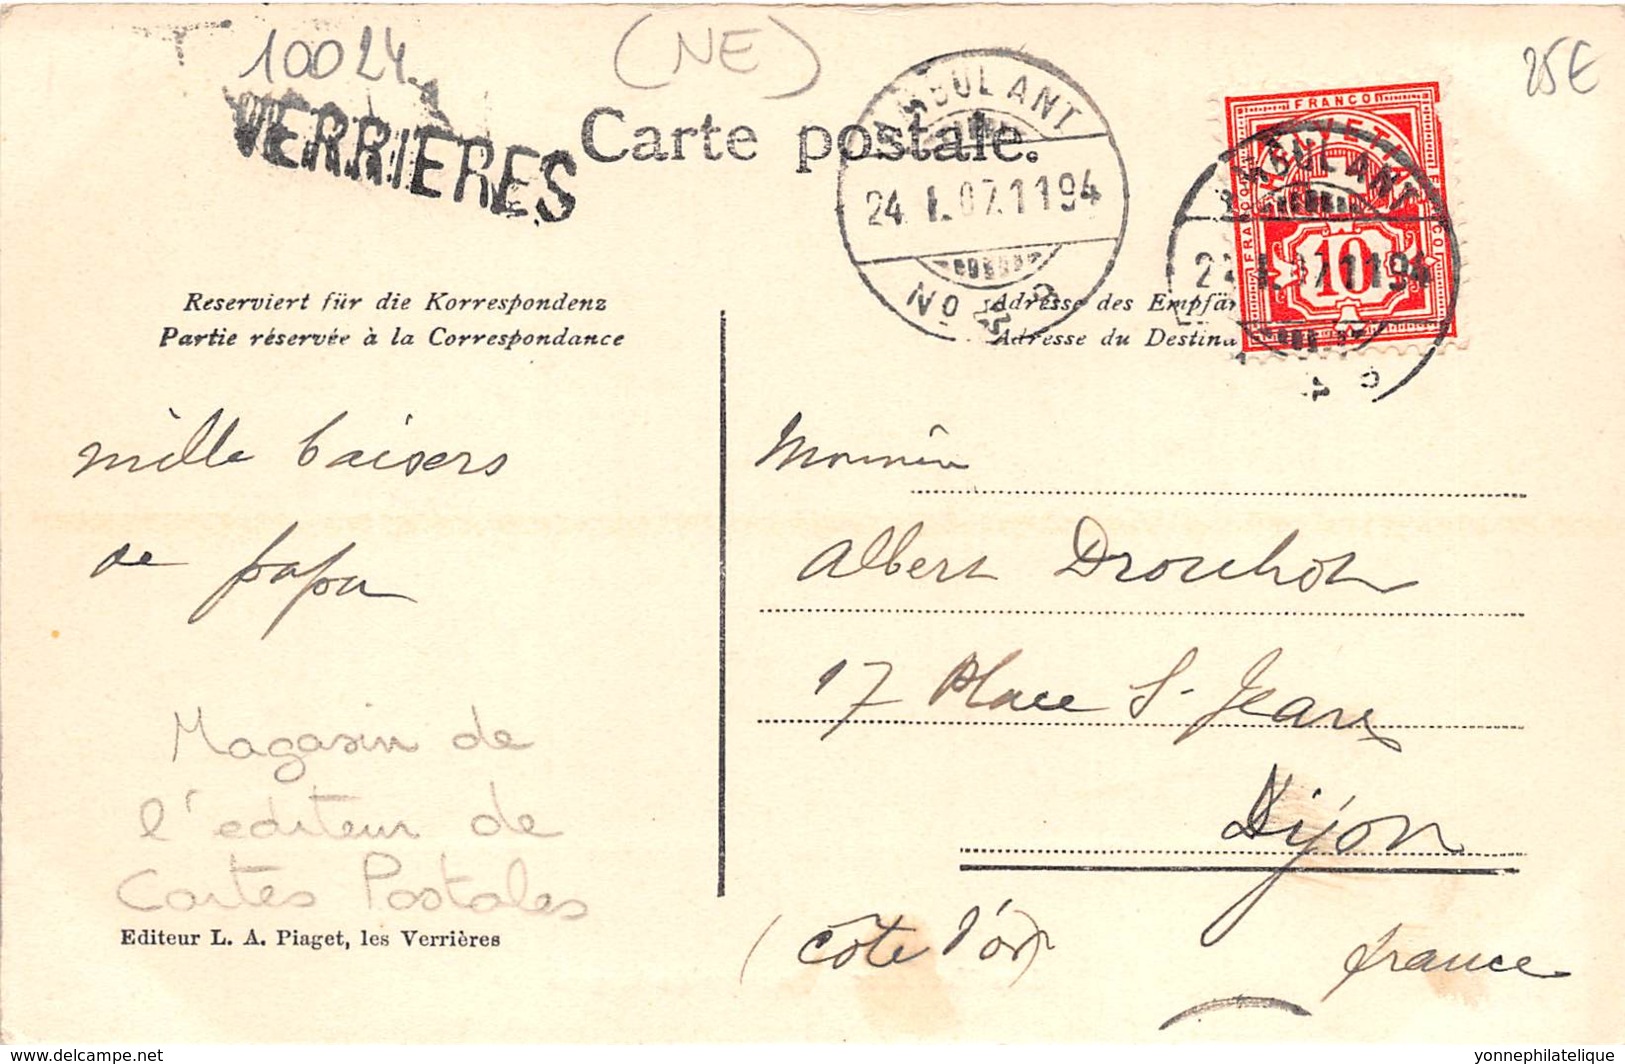 10024
(NE)
25€
VERRIÈRES
Carte postale.
AMBULANT
24. I. 07. 1194
No
FRANCO
HELVETIA
AMBULANT
FRANCO
FRANCO
10
I. 07. 1194
Reserviert für die Korrespondenz
Partie réservée à la Correspondance
Adresse des Empfä
Adresse du Destina
mille baisers
de papa
Albert Drouhot
17 Place S- Jean
Dijon
(côte d'or)
france
Magasin de
l'editeur de
Cartes Postales
Editeur L. A. Piaget, les Verrières
www.delcampe.net
yonnephilatelique